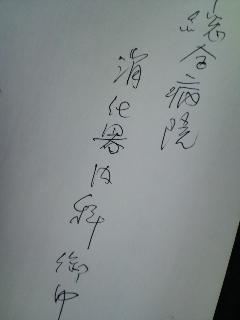 総合病院
消化器内科 御中